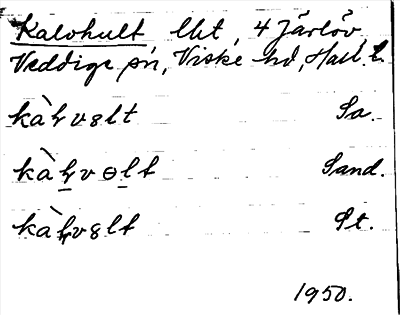 Kalvhult lht, 4 Järlöv,
Veddige sn, Viske hd, Hall. l.
kàlvɞlt Sa.
kàlvɵlt Sand.
kàlvɞlt St.
1950.